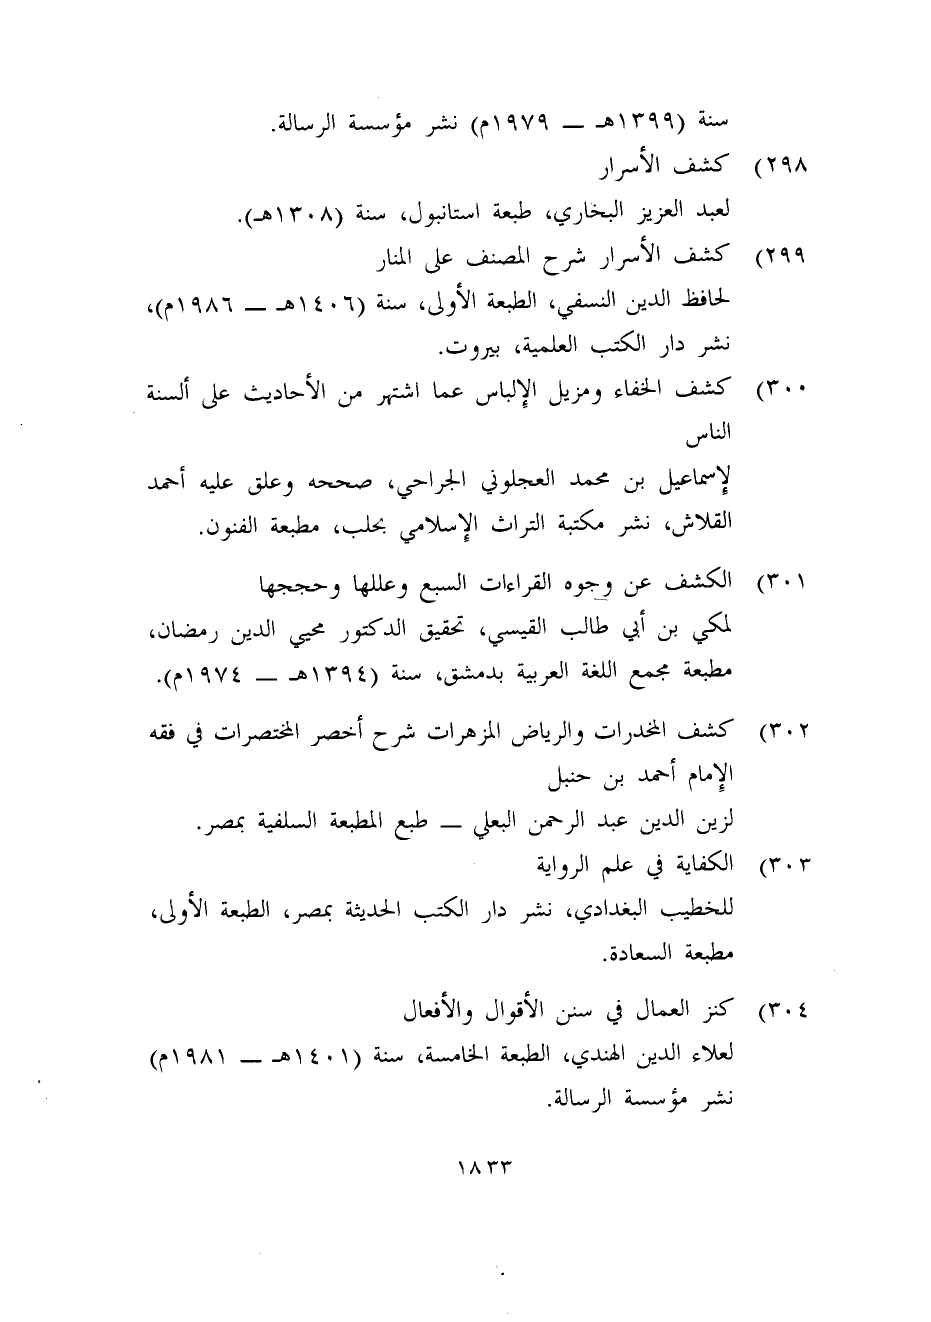 سنة (١٣٩٩هـ ــ ١٩٧٩م) نشر مؤسسة الرسالة.
٢٩٨) كشف الأسرار
لعبد العزيز البخاري، طبعة استانبول، سنة (١٣٠٨هـ).
٢٩٩) كشف الأسرار شرح المصنف على المنار
لحافظ الدين النسفي، الطبعة الأولى، سنة (١٤٠٦هـ ــ ١٩٨٦م)،
نشر دار الكتب العلمية، بيروت.
٣٠٠) كشف الخفاء ومزيل الإلباس عما اشتهر من الأحاديث على ألسنة
الناس
لإسماعيل بن محمد العجلوني الجراحي، صححه وعلق عليه أحمد
القلاش، نشر مكتبة التراث الإسلامي بحلب، مطبعة الفنون.
٣٠١) الكشف عن وجوه القراءات السبع وعللها وحججها
لمكي بن أبي طالب القيسي، تحقيق الدكتور محيي الدين رمضان،
مطبعة مجمع اللغة العربية بدمشق، سنة (١٣٩٤هـ ــ ١٩٧٤م).
٣٠٢) كشف المخدرات والرياض المزهرات شرح أخصر المختصرات في فقه
الإمام أحمد بن حنبل
لزين الدين عبد الرحمن البعلي ــ طبع المطبعة السلفية بمصر.
٣٠٣) الكفاية في علم الرواية
للخطيب البغدادي، نشر دار الكتب الحديثة بمصر، الطبعة الأولى،
مطبعة السعادة.
٣٠٤) كنز العمال في سنن الأقوال والأفعال
لعلاء الدين الهندي، الطبعة الخامسة، سنة (١٤٠١هـ ــ ١٩٨١م)
نشر مؤسسة الرسالة.
١٨٣٣